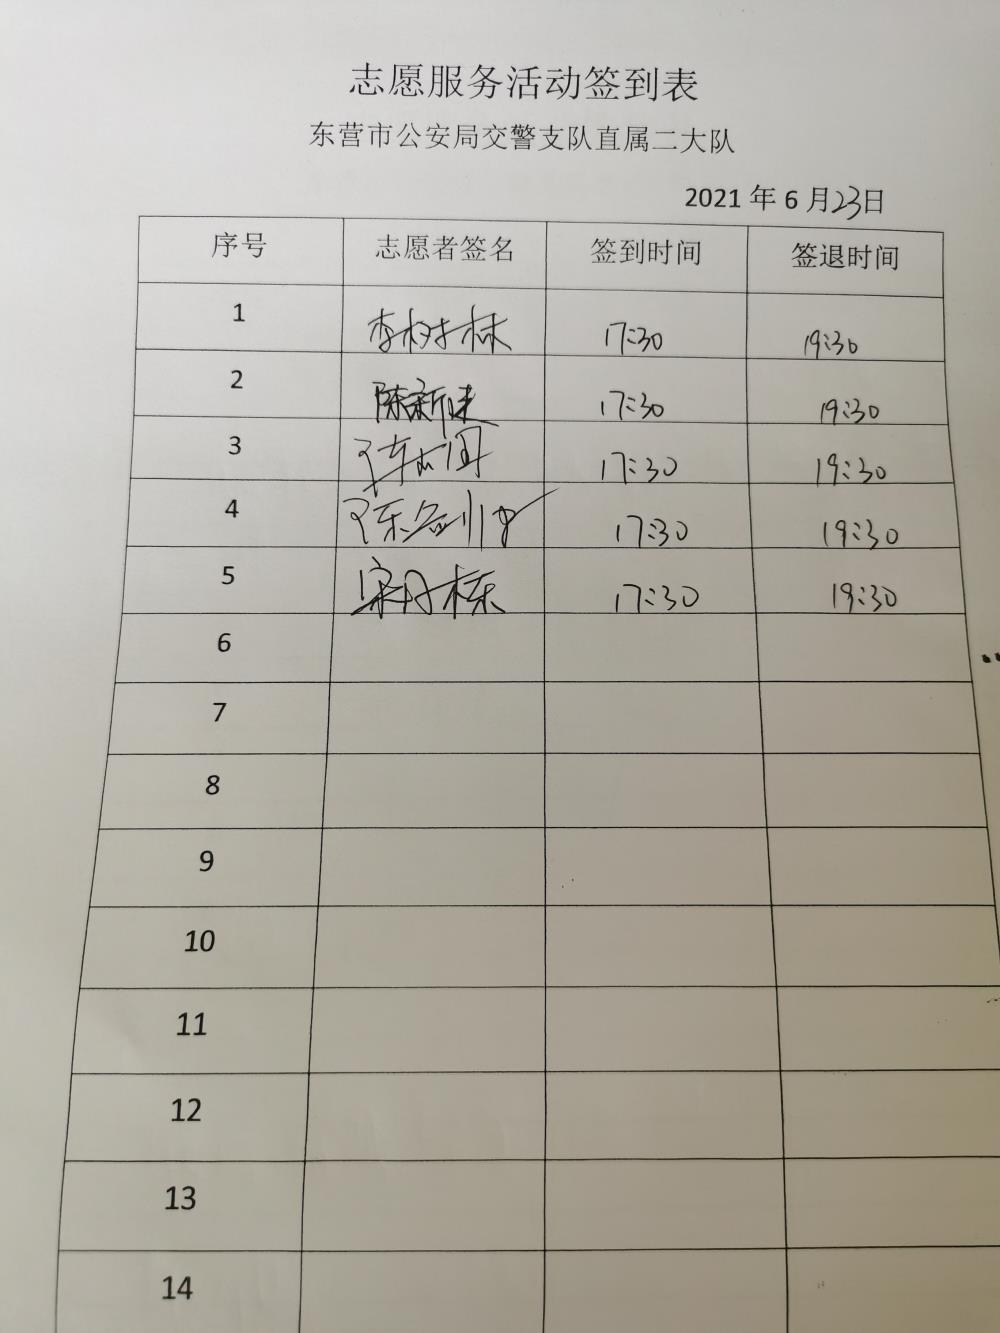 志愿服务活动签到表
东营市公安局交警支队直属二大队
2021 年 6 月23日
序号 志愿者签名 签到时间 签退时间
1 李树林 17:30 19:30
2 17:30 19:30
3 17:30 19:30
4 17:30 19:30
5 17:30 19:30
6
7
8
9
10
11
12
13
14